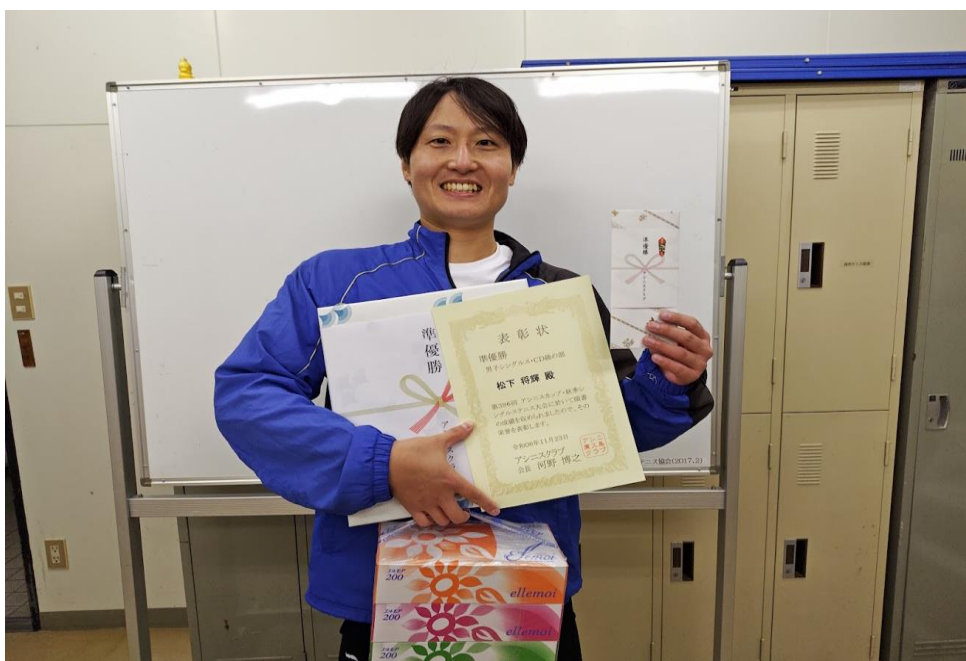 準優勝
準優勝
表彰状
準優勝
男子シングルス・CD級の部
松下 将輝 殿
第396回 アシニスカップ・秋季シ
ングルステニス大会に於いて頭書
の成績を収められましたので、その
栄誉を表彰します。
令和06年11月23日
アシニスクラブ
会長 河野 博之
テニス協会(2017.2)
エルモア
200
ellemoi
200
ellemoi
200